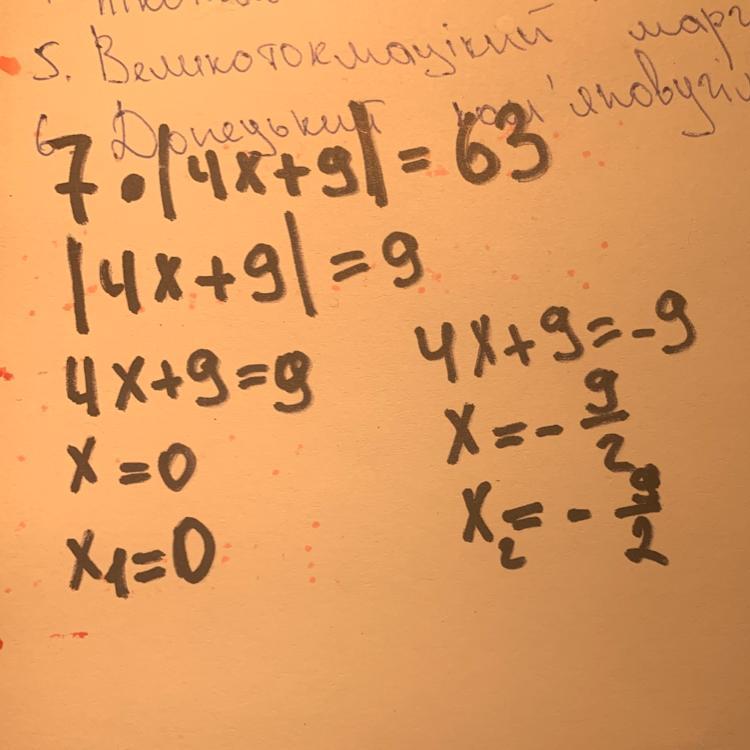 5. Великотокмацікий марг
6. Донецький кам'яновугіл
7 • |4x+9| = 63
|4x+9| = 9
4x+9=9
x=0
x₁=0
4x+9=-9
x=-9/2
x₂=-9/2